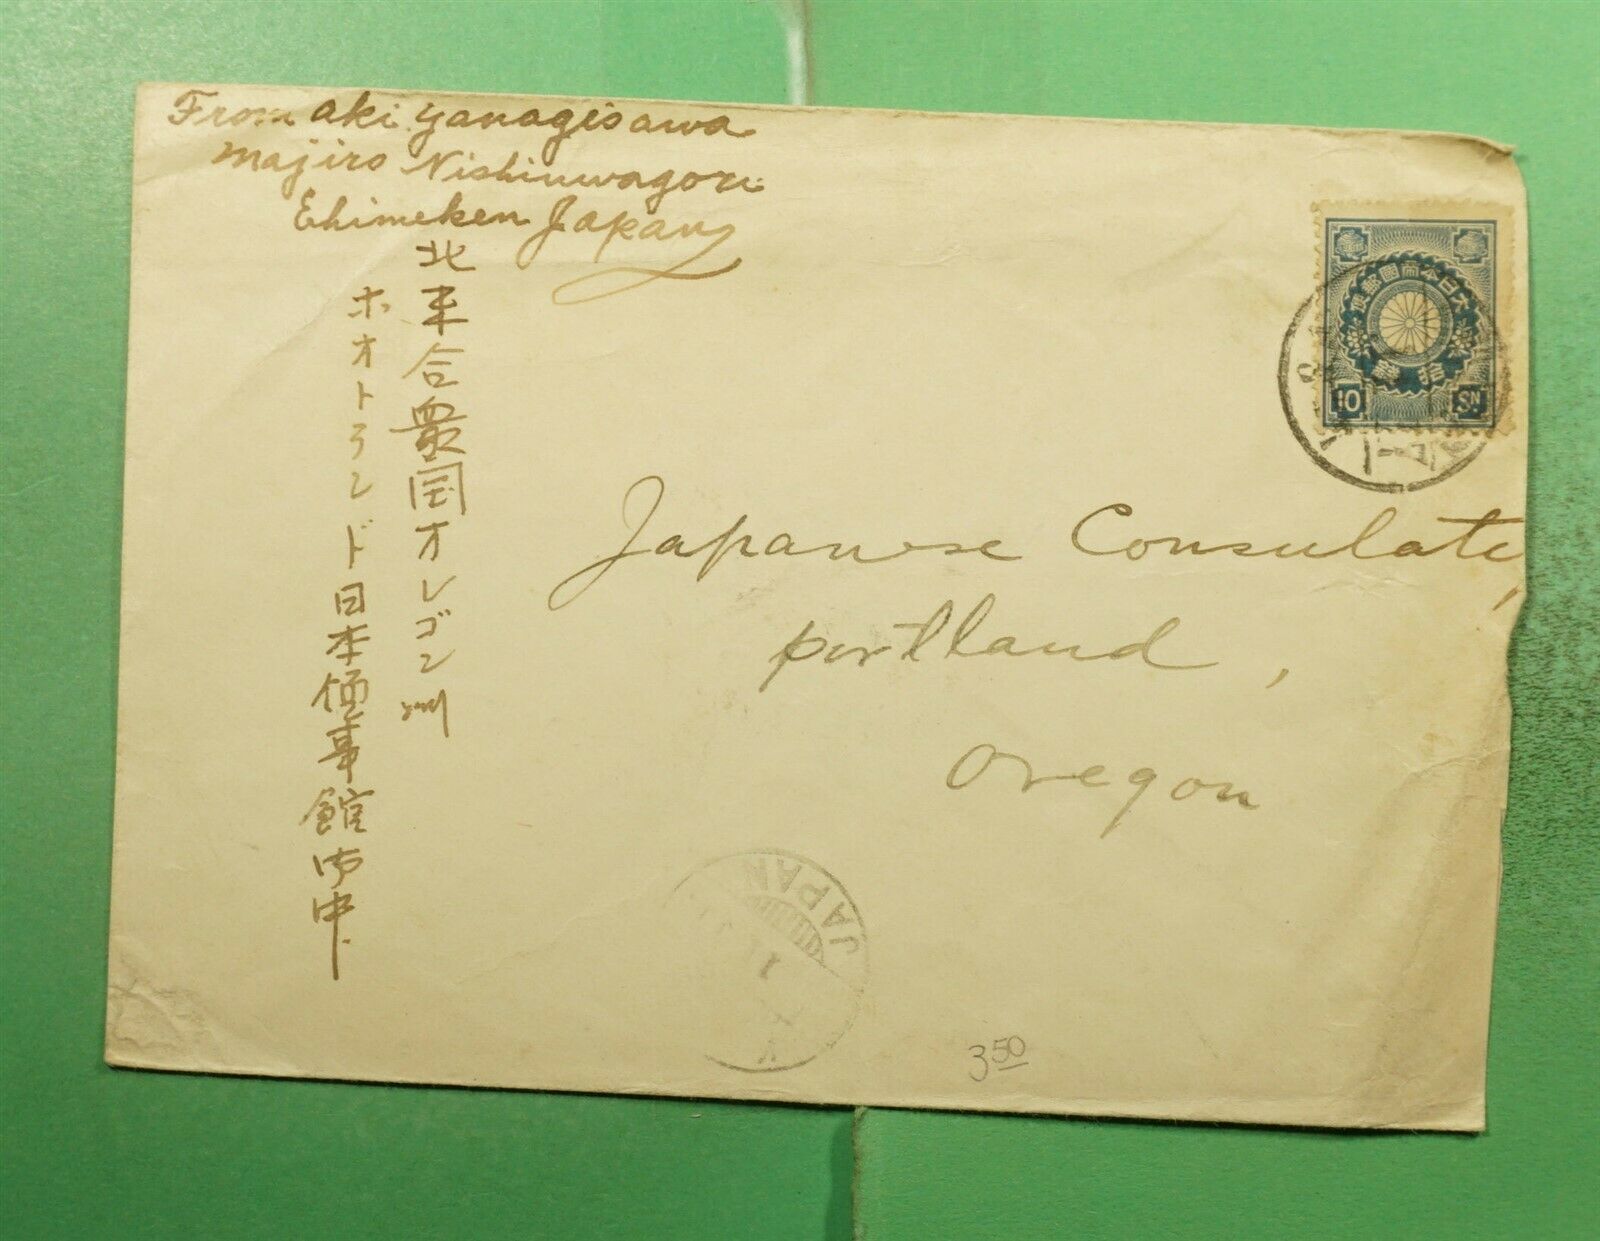 From Aki Yanagisawa
Majiro Nishiuwagori
Ehimeken Japan
北米合衆国オレゴン州
ホオトランド日本領事館御中
大日本帝國郵便
拾錢
10 SN
Japanese Consulate,
Portland,
Oregon
JAPAN
3.50